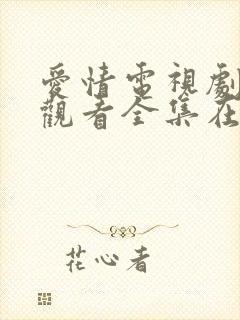 愛情電視劇
觀看全集在
花心者